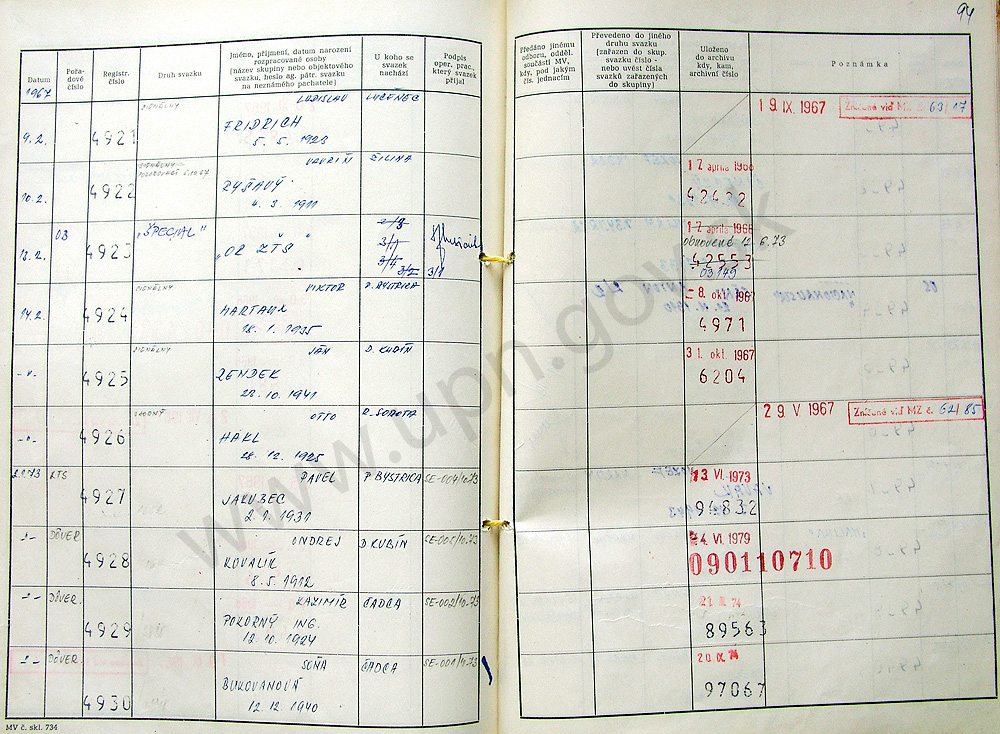 94
Datum
Pořa-
dové
číslo
Registr.
číslo
Druh svazku
Jméno, příjmení, datum narození
rozpracované osoby
[název skupiny nebo objektového
svazku, heslo ag. pátr. svazku
na neznámého pachatele]
U koho se
svazek
nachází
Podpis
oper. prac.,
který svazek
přijal
Předáno jinému
odboru, odděl.
součásti MV,
kdy, pod jakým
čís. jednacím
Převedeno do jiného
druhu svazku
[zařazen do skup.
svazku číslo -
nebo uvést čísla
svazků zařazených
do skupiny]
Uloženo
do archívu
kdy, kam,
archívní číslo
Poznámka
1967
SIGNÁLNY LADISLAV LUČENEC
9.2. 4921 FRIDRICH
5. 5. 1923
19. IX. 1967 Zničené viď MZ č. 63/17
SIGNÁLNY ŽILINA
10.2. 4922 RYŠAVÝ
4. 3. 1911
17. apríla 1968
42432
13.2. 03 4923 „ŠPECIAL" „OZ ŽŤS"
2/3
3/1
3/4
3/2 3/1
17. apríla 1968
obnovené 12. 6. 73
42553
03149
SIGNÁLNY VIKTOR B. BYSTRICA
14.2. 4924
18. 1. 1935
-8. okt. 1967
4971
SIGNÁLNY JÁN D. KUBÍN
-"- 4925 ZENDEK
22. 10. 1941
31. okt. 1967
6204
OTTO R. SOBOTA
-"- 4926 HAKL
28. 12. 1925
29. V. 1967 Zničené viď MZ č. 62/85
2.1.73 KTS 4927 PAVEL P. BYSTRICA SE-004/10.73
JAKUBEC
2. 1. 1931
13. VI. 1973
94832
-"- DÔVER. 4928 ONDREJ D. KUBÍN SE-005/10.73
KOVALÍK
8. 5. 1912
4. VI. 1979
090110710
-"- DÔVER. 4929 KAZIMÍR ČADCA SE-002/10.73
POKORNÝ ING.
12. 10. 1924
89563
-"- DÔVER. 4930 SOŇA ČADCA SE-001/10.73
BUKOVANOVÁ
12. 12. 1940
97067
MV č. skl. 734
www.upn.gov.sk